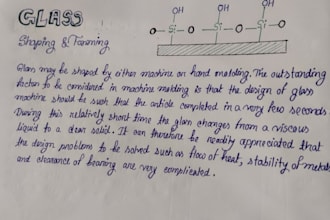 GLASS
Shaping & Forming
OH OH OH
O Si O Si O Si O
Glass may be shaped by either machine or hand molding. The outstanding
factor to be considered in machine molding is that the design of glass
machine should be such that the article completed in a very few seconds.
During this relatively short time the glass changes from a viscous
liquid to a clear solid. It can therefore be readily appreciated that
the design problems to be solved such as flow of heat, stability of metals
and clearance of bearing are very complicated.